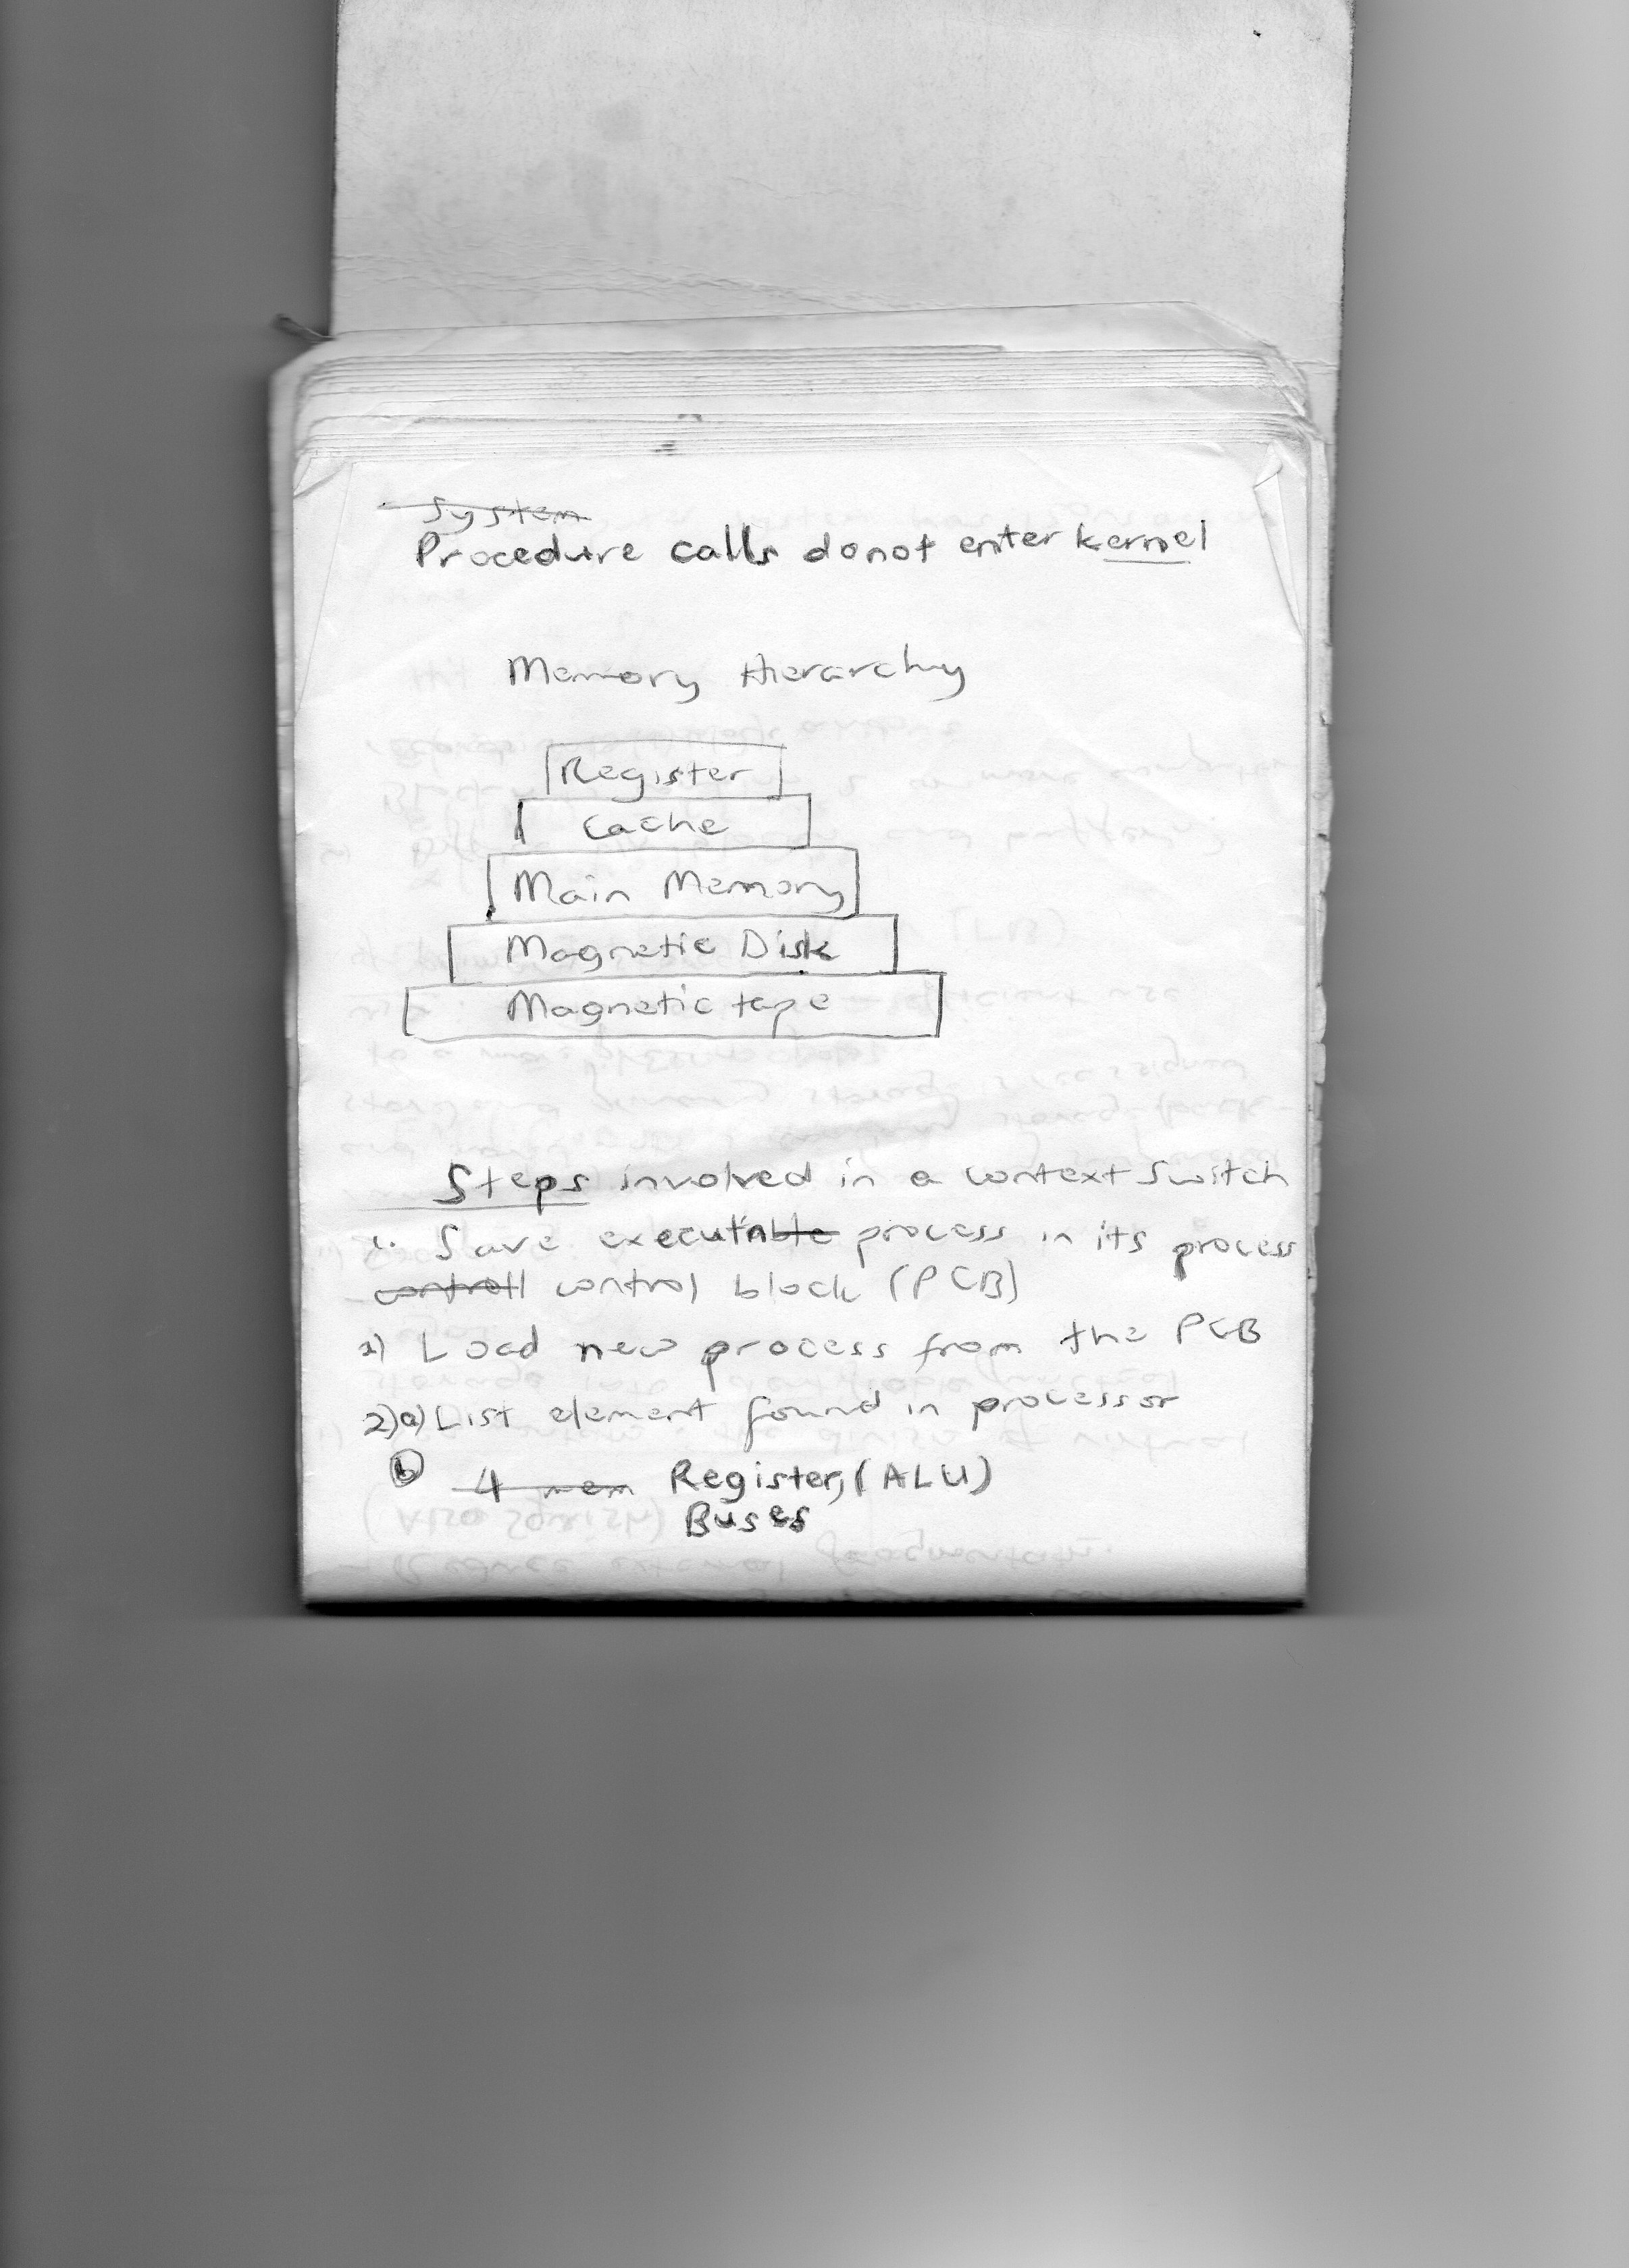 System
Procedure calls donot enter kernel
Memory Hierarchy
Register
Cache
Main Memory
Magnetic Disk
Magnetic tape
Steps involved in a context Switch
1. Save executable process in its process
controll control block (PCB)
2) Load new process from the PCB
2)a) List element found in processor
b 4 mem Register, (ALU)
Buses